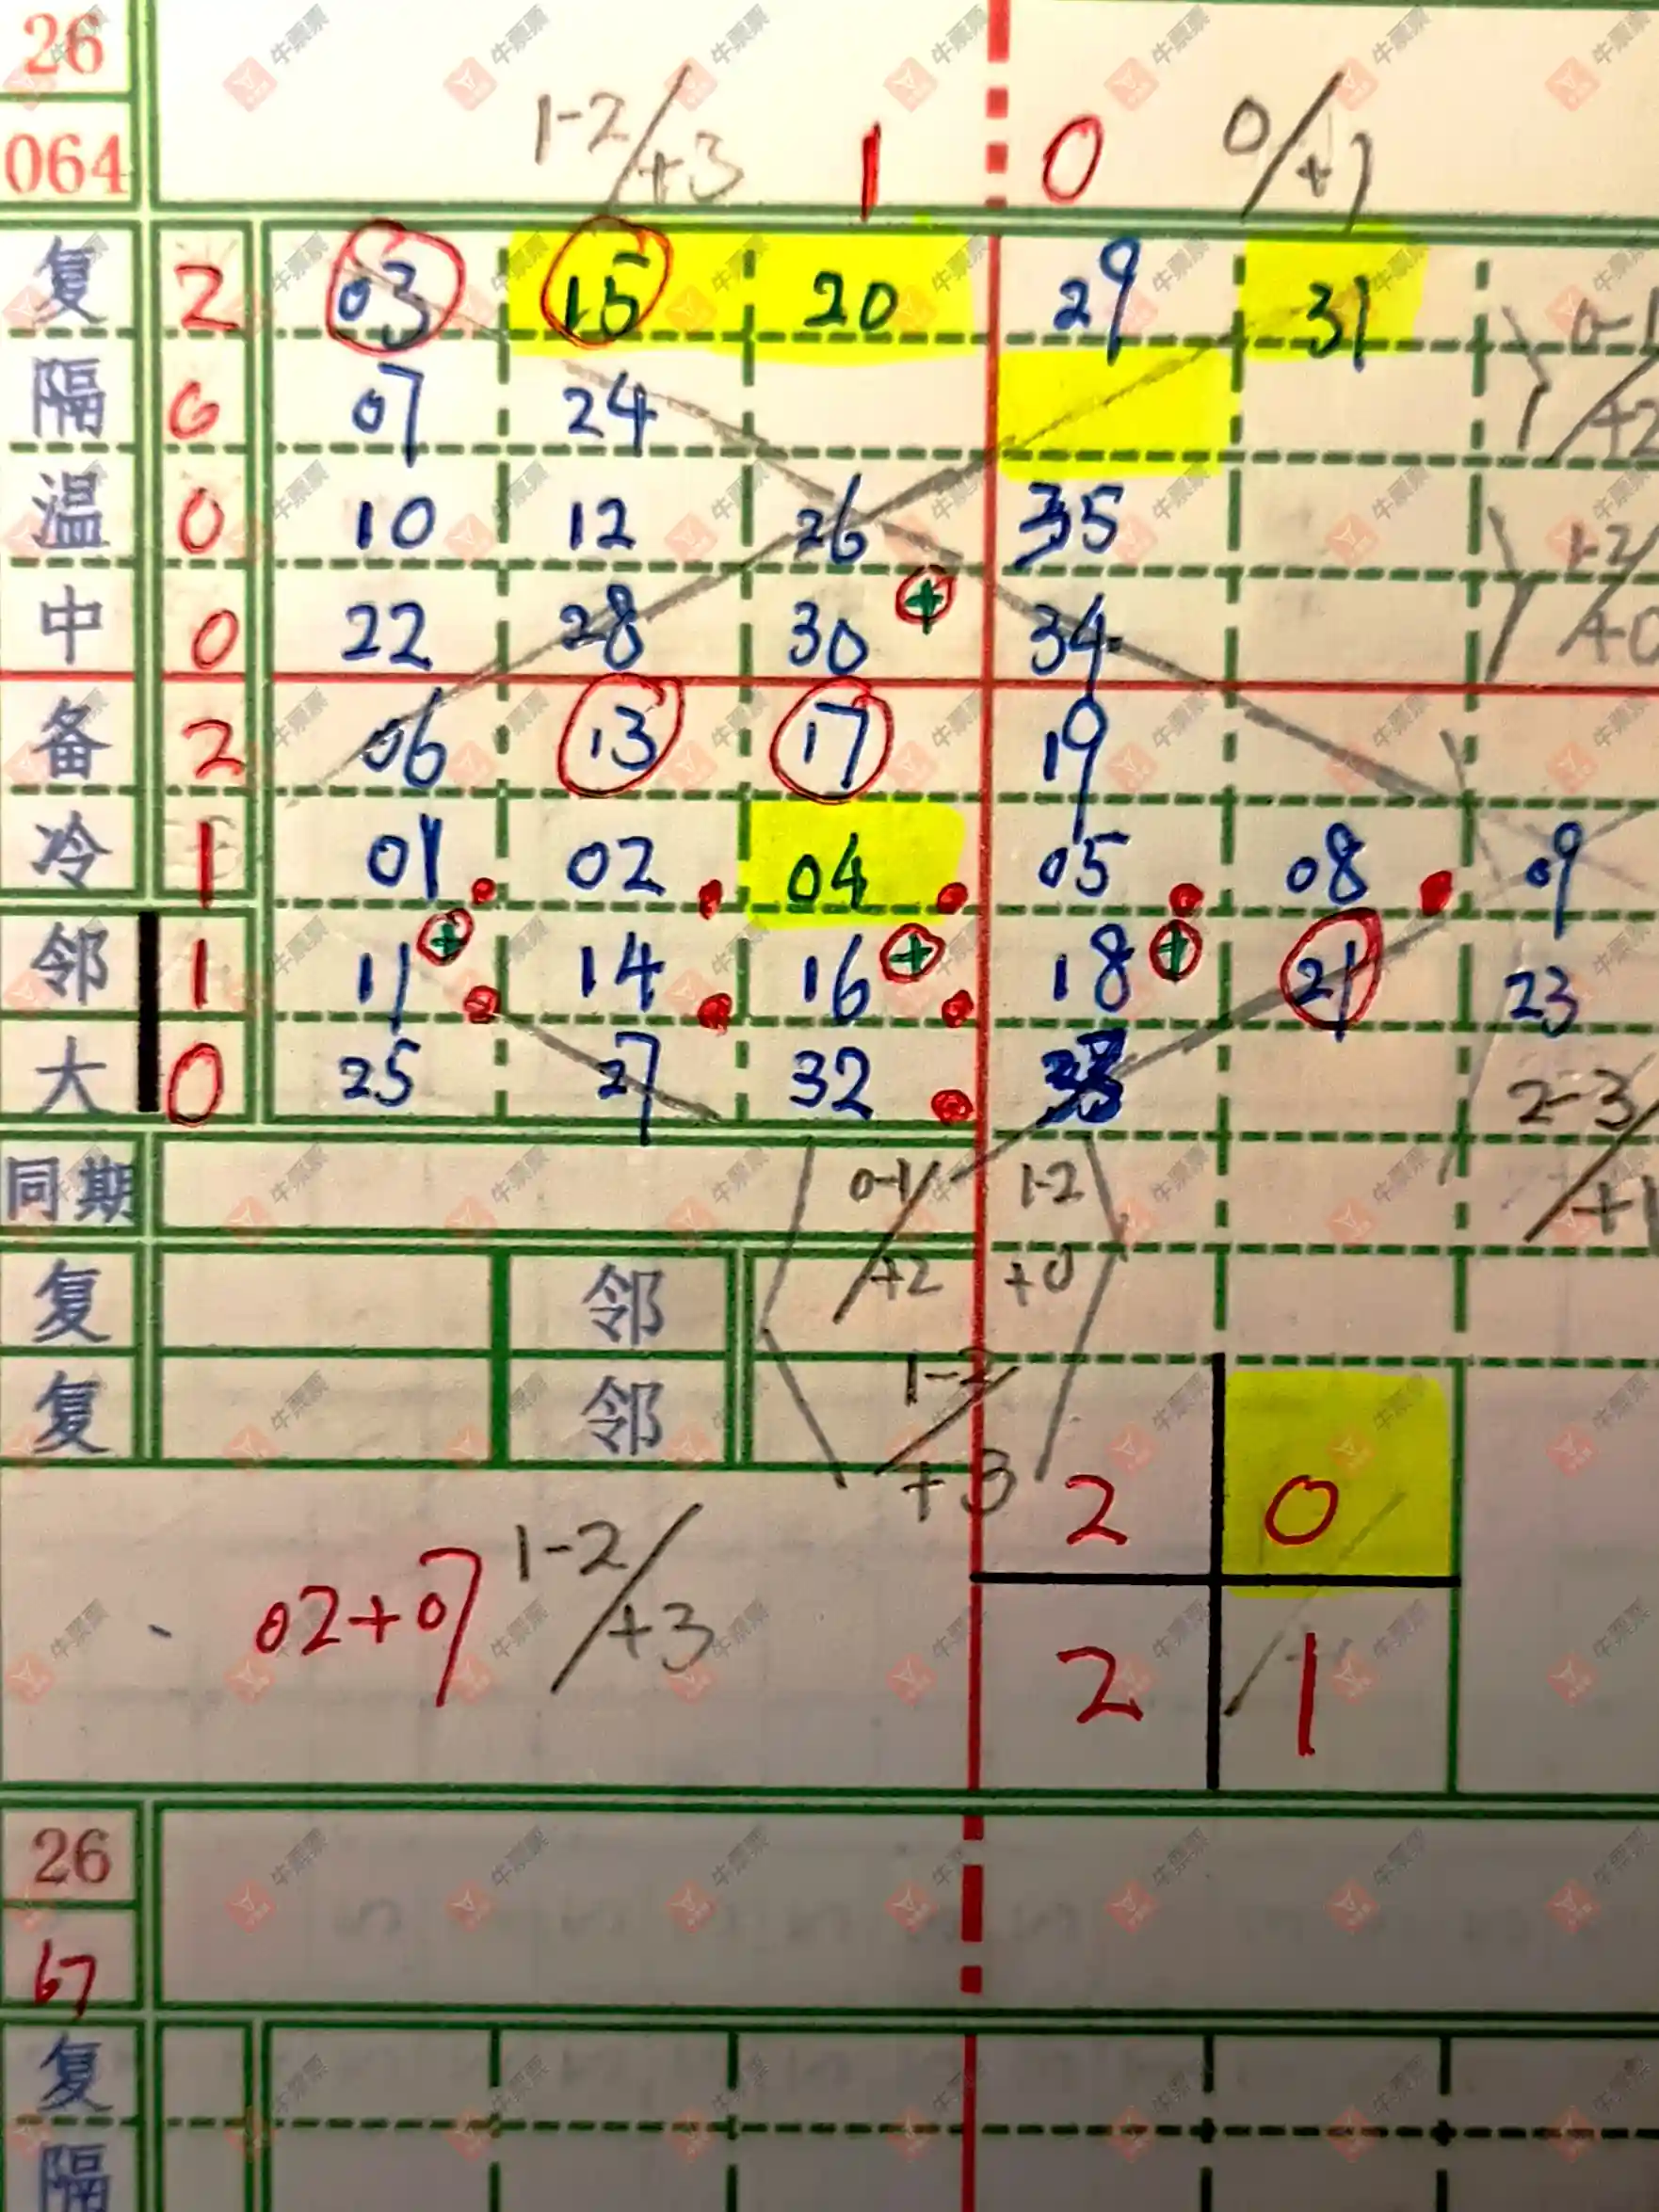 26
064 1-2/+3 1 0 0/+1
复 2 03 15 20 29 31 0-1/+2
隔 0 07 24
温 0 10 12 26 35 1-2/+0
中 0 22 28 30 + 34
备 2 06 13 17 19
冷 1 01 02 04 05 08 09
邻 1 11 + 14 16 + 18 + 21 23
大 0 25 27 32 33 2-3/+1
同期 0-1/+2 1-2 +0
复 邻
复 邻 1-2/+3
2 0
02+07 1-2/+3
2 1
26
67
复
隔
牛票票